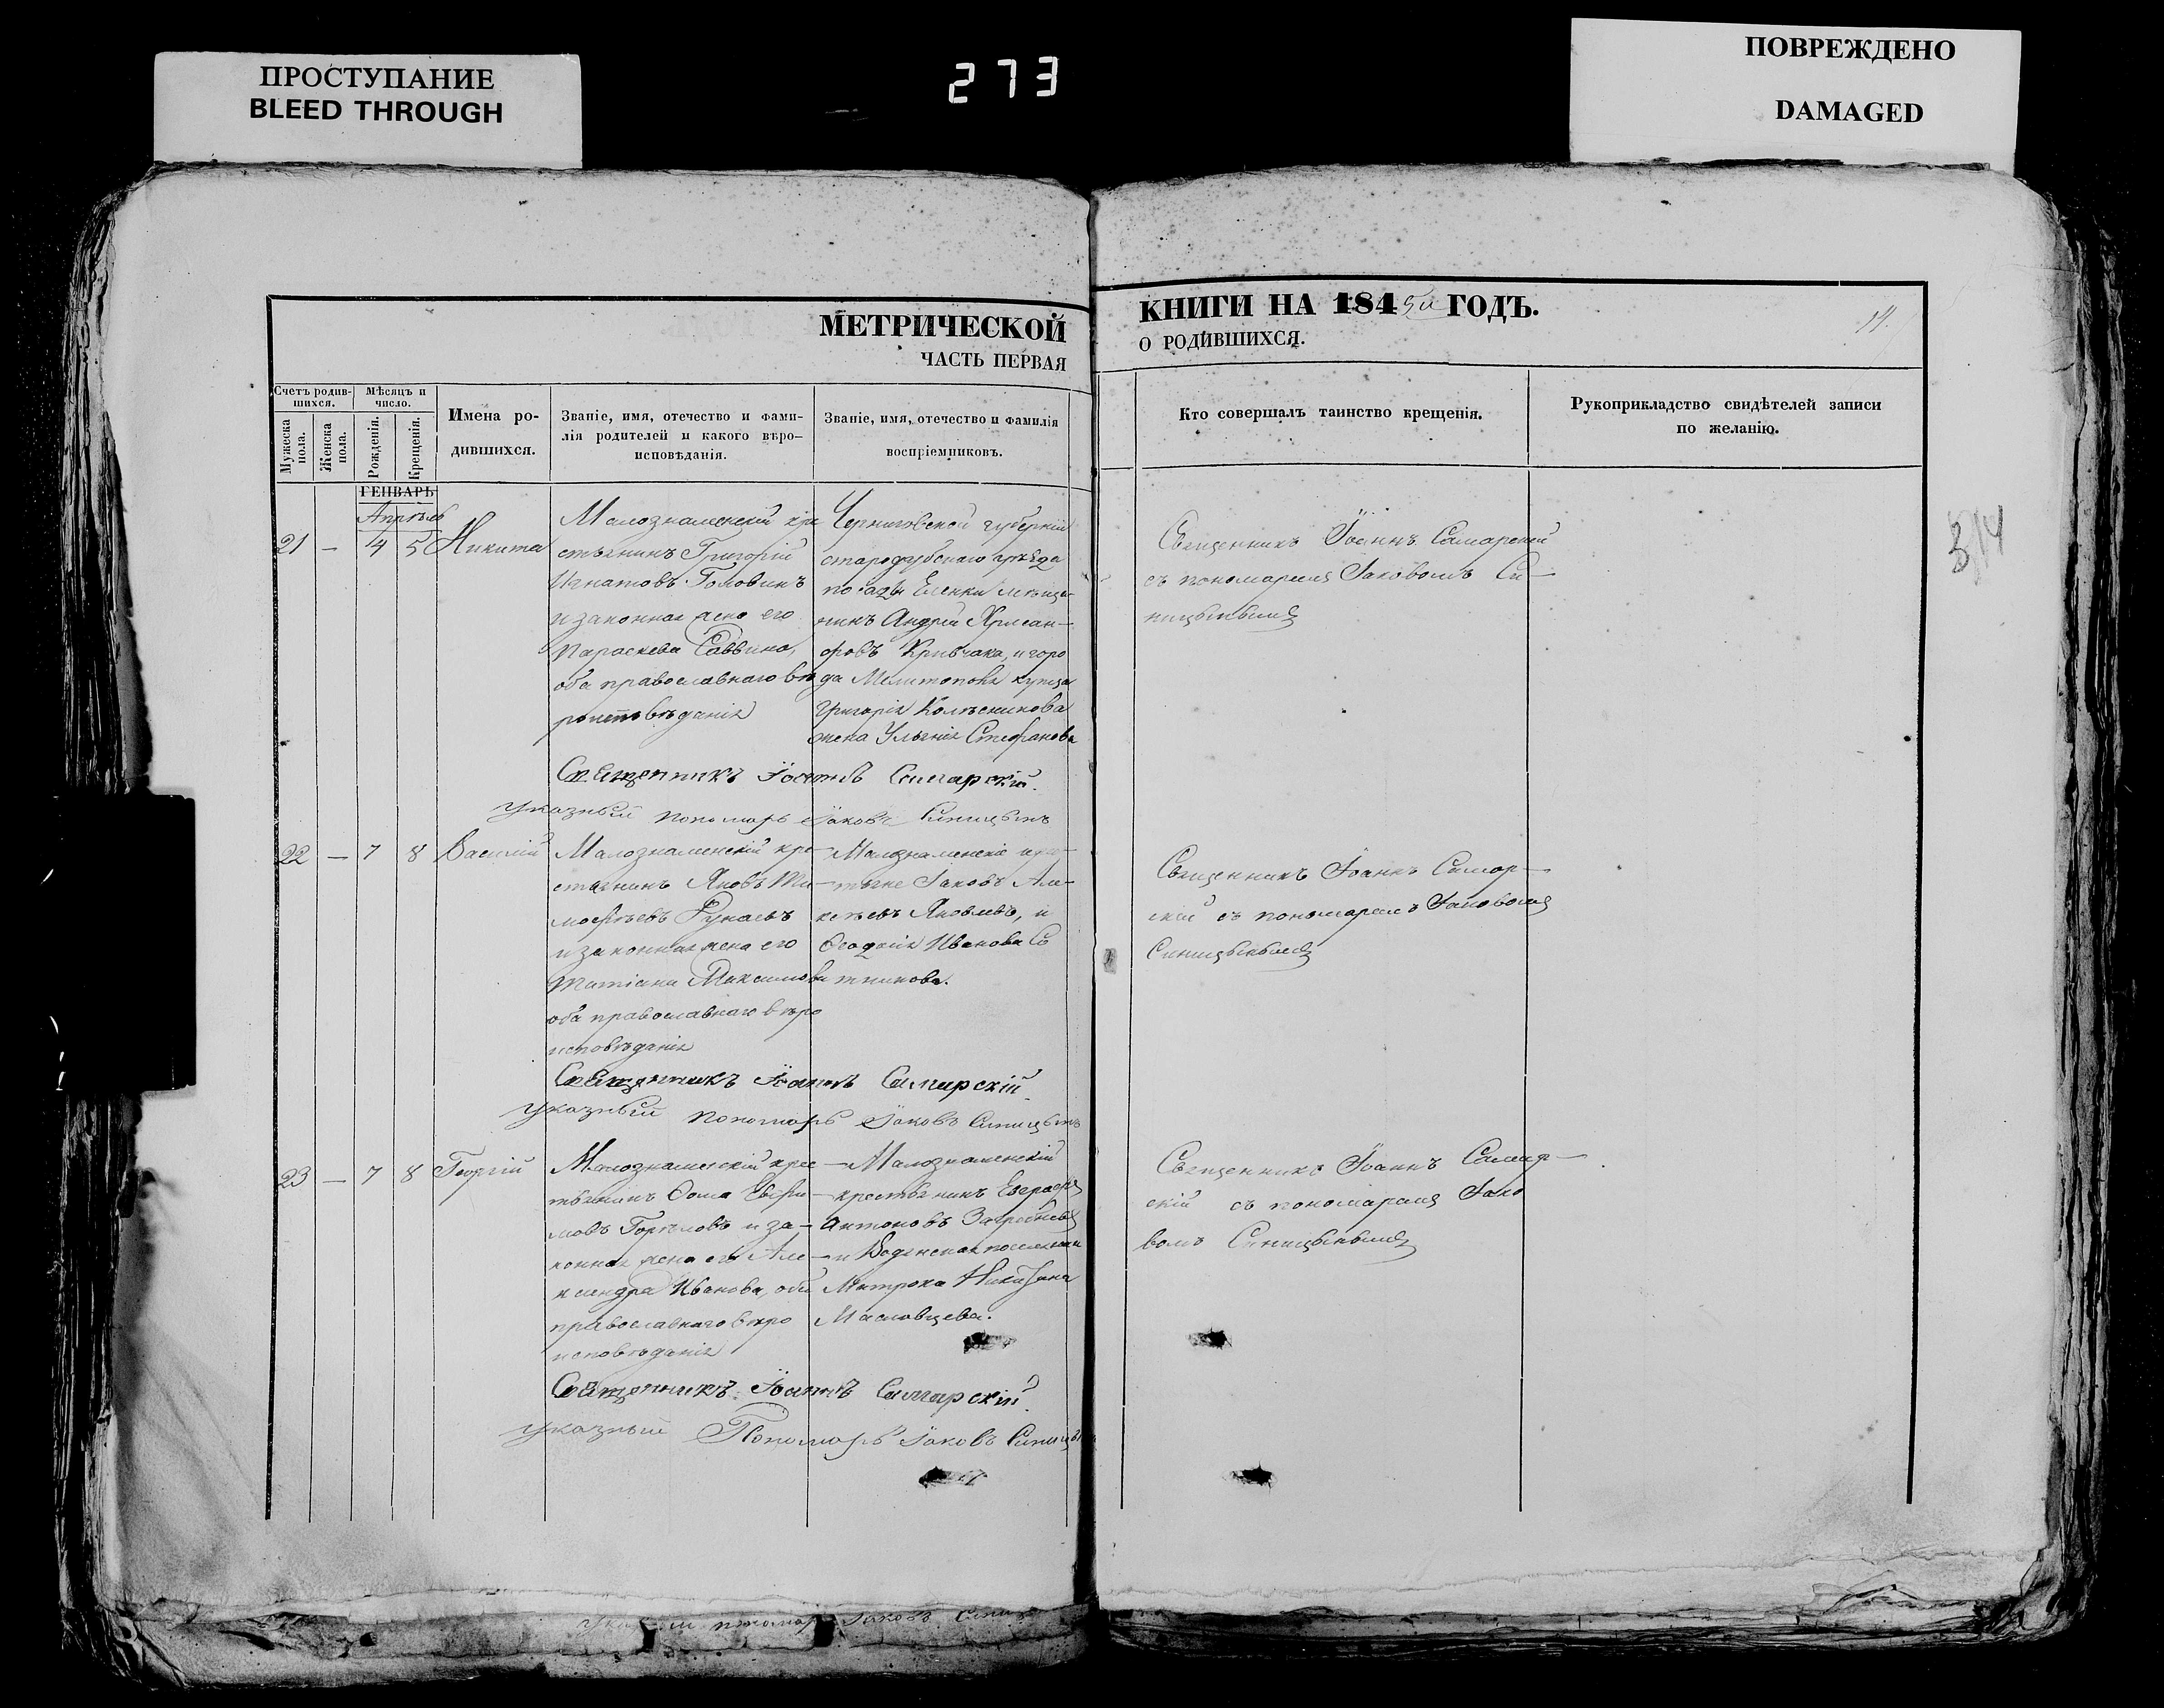 ПРОСТУПАНИЕ
BLEED THROUGH
273
ПОВРЕЖДЕНО
DAMAGED
МЕТРИЧЕСКОЙ
ЧАСТЬ ПЕРВАЯ
КНИГИ НА 1845й ГОДЪ.
О РОДИВШИХСЯ.
Счетъ родив-
шихся.
Мѣсяцъ и
число.
Мужеска
пола.
Женска
пола.
Рожденія.
Крещенія.
Имена ро-
дившихся.
Званіе, имя, отечество и фами-
лія родителей и какого вѣро-
исповѣданія.
Званіе, имя, отечество и фамилія
воспріемниковъ.
Кто совершалъ таинство крещенія.
Рукоприкладство свидѣтелей записи
по желанію.
ГЕНВАРЬ
Апрѣль
21 — 4 5 Никита
Малознаменскій кре
стьянинъ Григорій
Игнатовъ Головинъ
и законная жена его
Параскева Саввина,
оба православнаго вѣ
роисповѣданія
Черниговской губерніи
стародубскаго уѣзда
посада Еленки мѣща-
нинъ Андрей
Кривчака, и горо
да Мелитополя купца
Григорія Колѣсникова
жена Ульянія Стефанова
Священникъ Іоаннъ Самарскій
съ пономаремъ Іаковомъ Си-
ницынымъ
314
Священникъ Іоаннъ Самарскій.
указный пономарь Іаковъ Синицынъ
22 — 7 8 Василій
Малознаменскій кре-
стьянинъ Яковъ Ти-
мофѣевъ
и законная жена его
Татіана Максимова
оба православнаго вѣро
исповѣданія
Малознаменскіе крес-
тьяне Іаковъ Але-
ксѣевъ Яковлевъ, и
Ѳеодосія Иванова Со
тникова.
Священникъ Іоаннъ Самар-
скій съ пономаремъ Іаковомъ
Синицынымъ
Священникъ Іоаннъ Самарскій
указный пономарь Іаковъ Синицынъ
23 — 7 8 Георгій
Малознаменскій крес-
тьянинъ Ѳома Евфи-
мовъ Горѣловъ и за-
конная жена его Але-
ксандра Иванова, оба
православнаго вѣро
исповѣданія
Малознаменскій
крестьянинъ Евграфъ
Антоновъ
и Водянская поселянка
Митрона Никитина
Масловцева.
Священникъ Іоаннъ Самар-
скій съ пономаремъ Іако
вомъ Синицынымъ
Священникъ Іоаннъ Самарскій.
указный Пономарь Іаковъ Синицы
пономарь Іаковъ